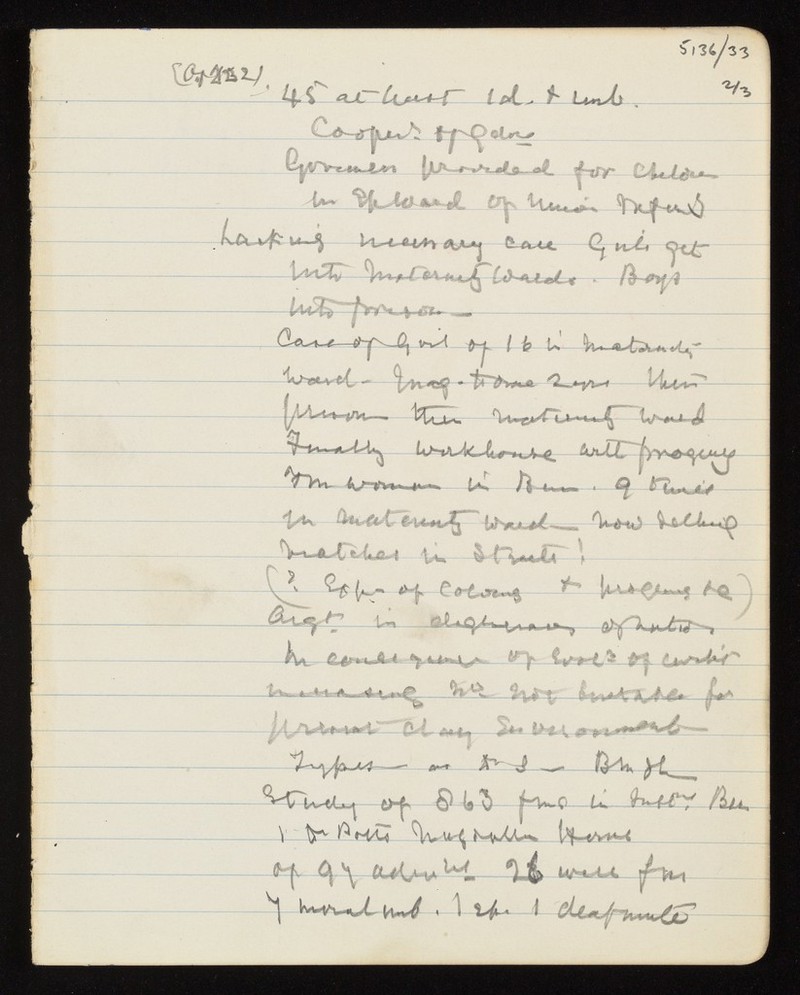 5136/33
2/3
45 at least id. & imb.
Cooper's of Gdns
Governess provided for children
in Ep Ward of Union
Lacking necessary care Girls get
into Maternity Wards. Boys
into prison
Case of Girl of 16 in Maternity
Ward - Mag. Home 2 yrs then
prison then maternity ward
Finally workhouse with progeny
Fm woman in Bm. 9 times
in maternity ward now selling
matches in Streets!
(? Exp. of Colony & progeny &c)
Argt. in
In consequence of of
increasing not suitable for
present day Environment
Types as
Study of 863 fms in Bm
1 Dr Potts Magdalen Home
of 97 26 were fm
7 moral imb. 1 ep. 1 deaf mute